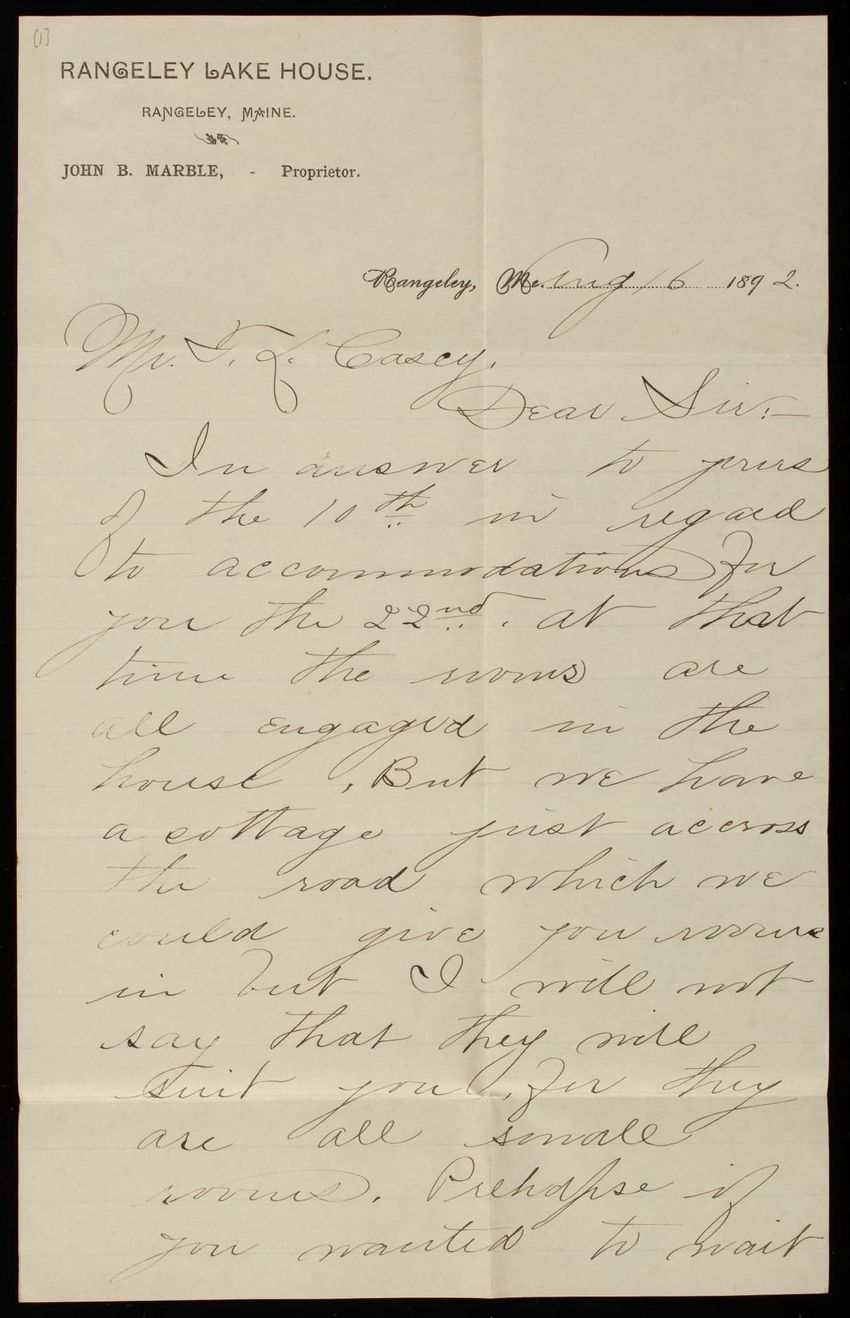 [1]
RANGELEY LAKE HOUSE.
RANGELEY, MAINE.
JOHN B. MARBLE, - Proprietor.
Rangeley, Me. Aug 16 1892.
Mr. T. L. Casey,
Dear Sir:—
In answer to yours
of the 10th in regard
to accommodations for
you the 22nd. at that
time the rooms are
all engaged in the
house, But we have
a cottage just accross
the road which we
could give you rooms
in but I will not
say that they will
suit you, for they
are all small
rooms. Prehapse if
you wanted to wait